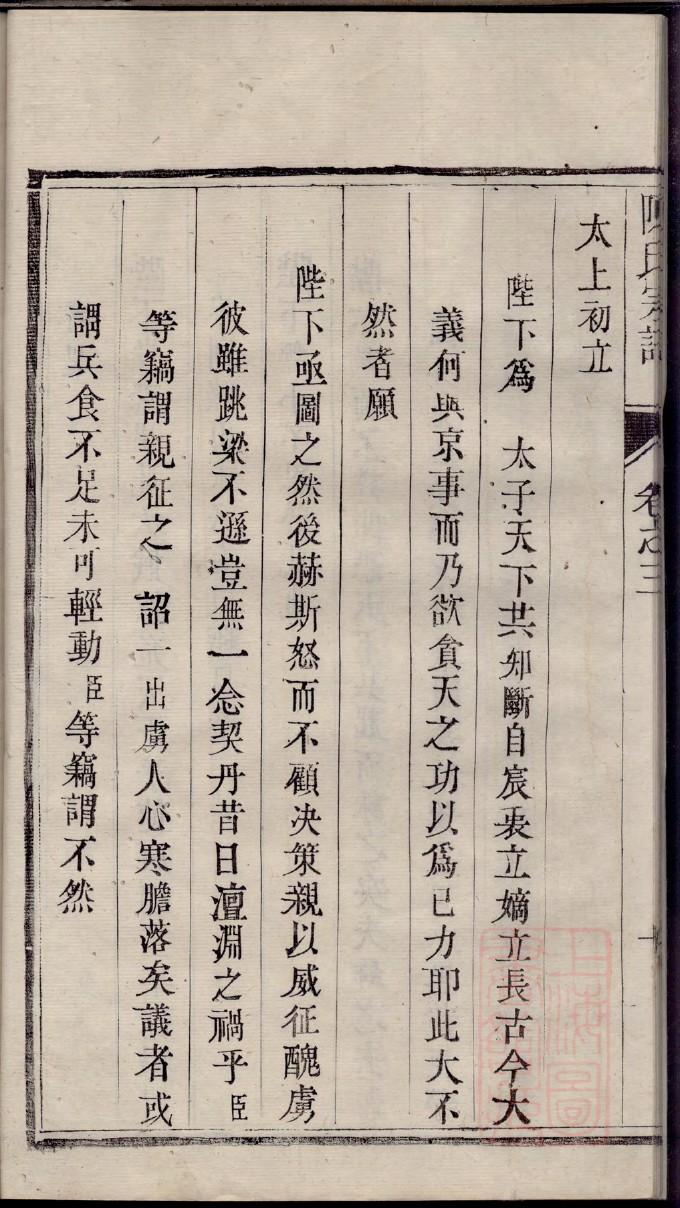 陳氏宗譜 卷之三
太上初立
陛下爲 太子天下共知斷自宸衷立嫡立長古今大
義何與京事而乃欲貪天之功以爲已力耶此大不
然者願
陛下亟圖之然後赫斯怒而不顧决策親以威征醜虜
彼雖跳梁不遜豈無一念契丹昔日澶淵之禍乎臣
等竊謂親征之 詔一出虜人心寒膽落矣議者或
謂兵食不足未可輕動臣等竊謂不然